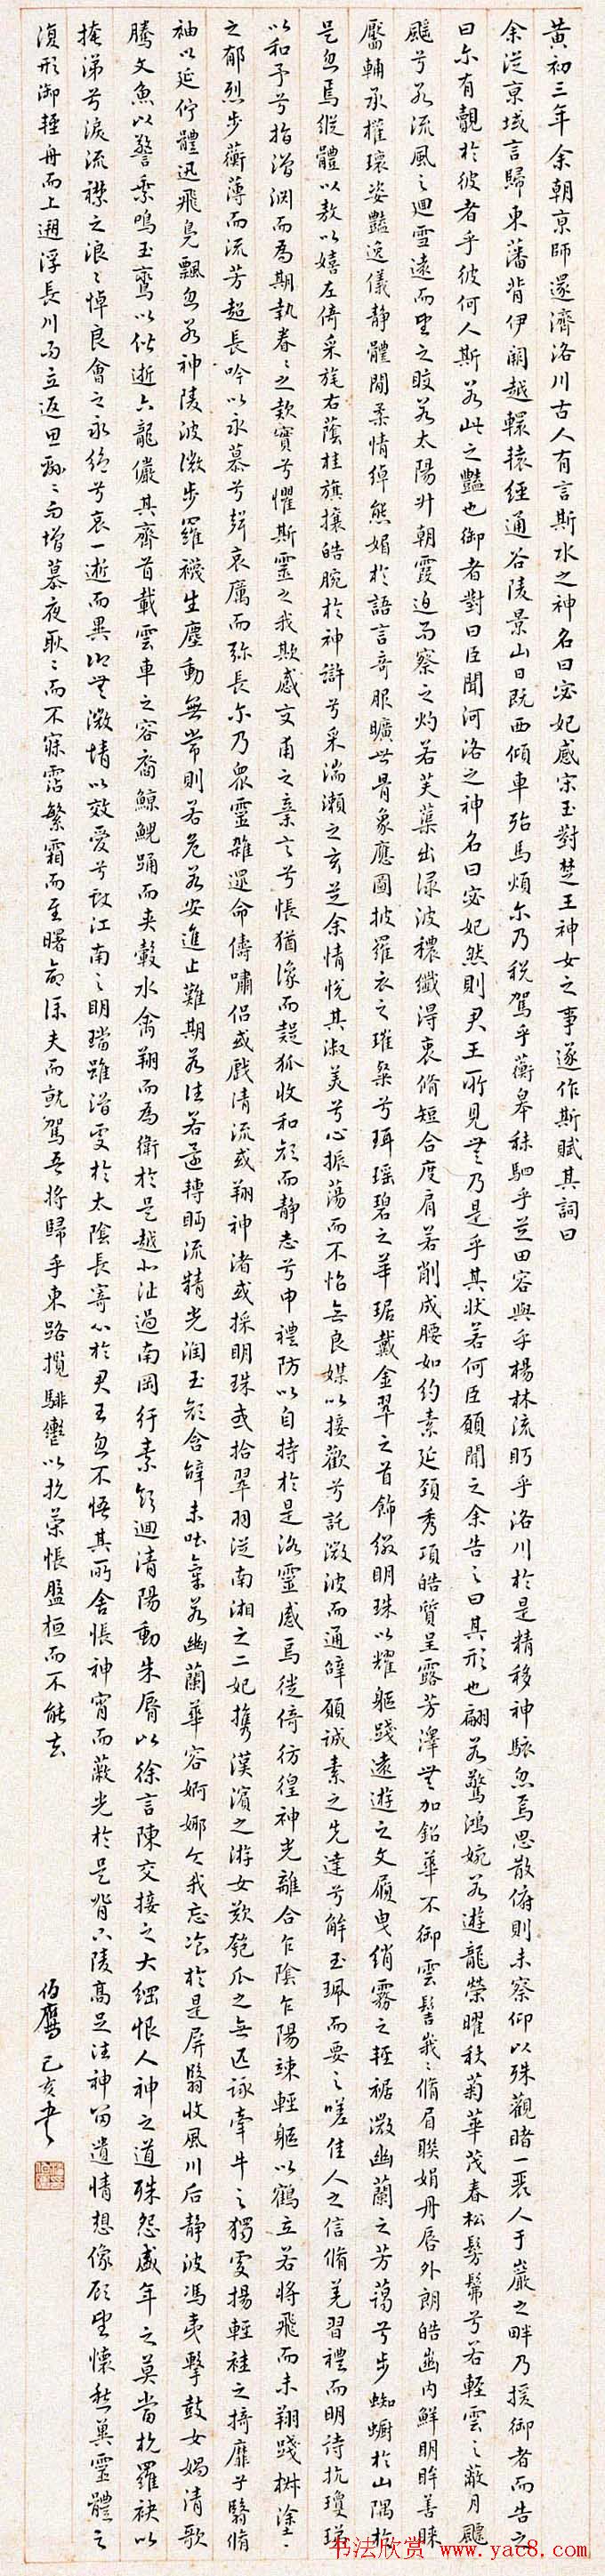 黄初三年余朝京師還濟洛川古人有言斯水之神名曰宓妃感宋玉對楚王神女之事遂作斯賦其詞曰
余從京域言歸東藩背伊闕越轘轅經通谷陵景山日既西傾車殆馬煩尔乃税駕乎蘅皋秣駟乎芝田容與乎楊林流眄乎洛川於是精移神駭忽焉思散俯則未察仰以殊觀睹一麗人于巖之畔乃援御者而告之
曰尓有覿於彼者乎彼何人斯若此之豔也御者對曰臣聞河洛之神名曰宓妃然則君王所見無乃是乎其狀若何臣願聞之余告之曰其形也翩若驚鴻婉若遊龍榮曜秋菊華茂春松髣髴兮若輕雲之蔽月飄
飖兮若流風之迴雪遠而望之皎若太陽升朝霞迫而察之灼若芙蕖出淥波穠纖得衷脩短合度肩若削成腰如約素延頸秀項皓質呈露芳澤無加鉛華不御雲髻峩峩脩眉聯娟丹唇外朗皓齒内鮮明眸善睞
靨輔承權瓌姿豔逸儀静體閒柔情綽態媚於語言奇服曠世骨象應圖披羅衣之璀粲兮珥瑶碧之華琚戴金翠之首飾綴明珠以耀軀踐遠遊之文履曳綃霧之輕裾微幽蘭之芳藹兮步踟蹰於山隅於
是忽焉縱體以敖以嬉左倚采旄右蔭桂旗攘皓腕於神滸兮采湍瀨之玄芝余情悦其淑美兮心振蕩而不怡無良媒以接歡兮託微波而通辭願誠素之先達兮解玉珮而要之嗟佳人之信脩羌習禮而明詩抗瓊珶
以和予兮指潛淵而爲期執眷眷之款實兮懼斯靈之我欺感交甫之棄言兮悵猶豫而狐疑收和顔而静志兮申禮防以自持於是洛靈感焉徙倚彷徨神光離合乍陰乍陽竦輕軀以鶴立若將飛而未翔踐椒塗
之郁烈步蘅薄而流芳超長吟以永慕兮聲哀厲而弥長尔乃眾靈雜遝命儔嘯侣或戲清流或翔神渚或採明珠或拾翠羽從南湘之二妃攜漢濱之游女歎匏瓜之無匹詠牽牛之獨處揚輕袿之猗靡兮翳脩
袖以延佇體迅飛鳧飄忽若神陵波微步羅襪生塵動無常則若危若安進止難期若往若還轉眄流精光潤玉顔含辭未吐氣若幽蘭華容婀娜令我忘飡於是屏翳收風川后静波馮夷擊鼓女媧清歌
騰文魚以警乘鳴玉鸞以偕逝六龍儼其齊首載雲車之容裔鯨鯢踊而夾轂水禽翔而爲衛於是越北沚過南岡紆素領迴清陽動朱唇以徐言陳交接之大綱恨人神之道殊怨盛年之莫當抗羅袂以
掩涕兮淚流襟之浪浪悼良會之永絶兮哀一逝而異鄉無微情以效愛兮獻江南之明璫雖潛處於太陰長寄心於君王忽不悟其所舍悵神宵而蔽光於是背下陵高足往神留遺情想像顧望懷愁冀靈體之
復形御輕舟而上遡浮長川而忘返思緜緜而增慕夜耿耿而不寐霑繁霜而至曙命僕夫而就駕吾將歸乎東路攬騑轡以抗策悵盤桓而不能去
伯鷹己亥書
书法欣赏www.yac8.com